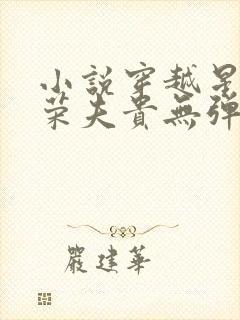 小說穿越星
荣夫貴無彈
嚴建華